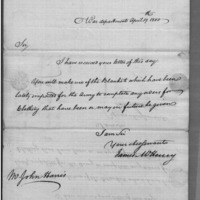 War department April 19th 1800
Sir,
I have received your letter of this day.
You will make use of the Blankets which have been
lately imported for the Army to complete any orders for
Clothing that have been or may in future be given
I am Sir
Your obed servant
James McHenry
Mr John Harris